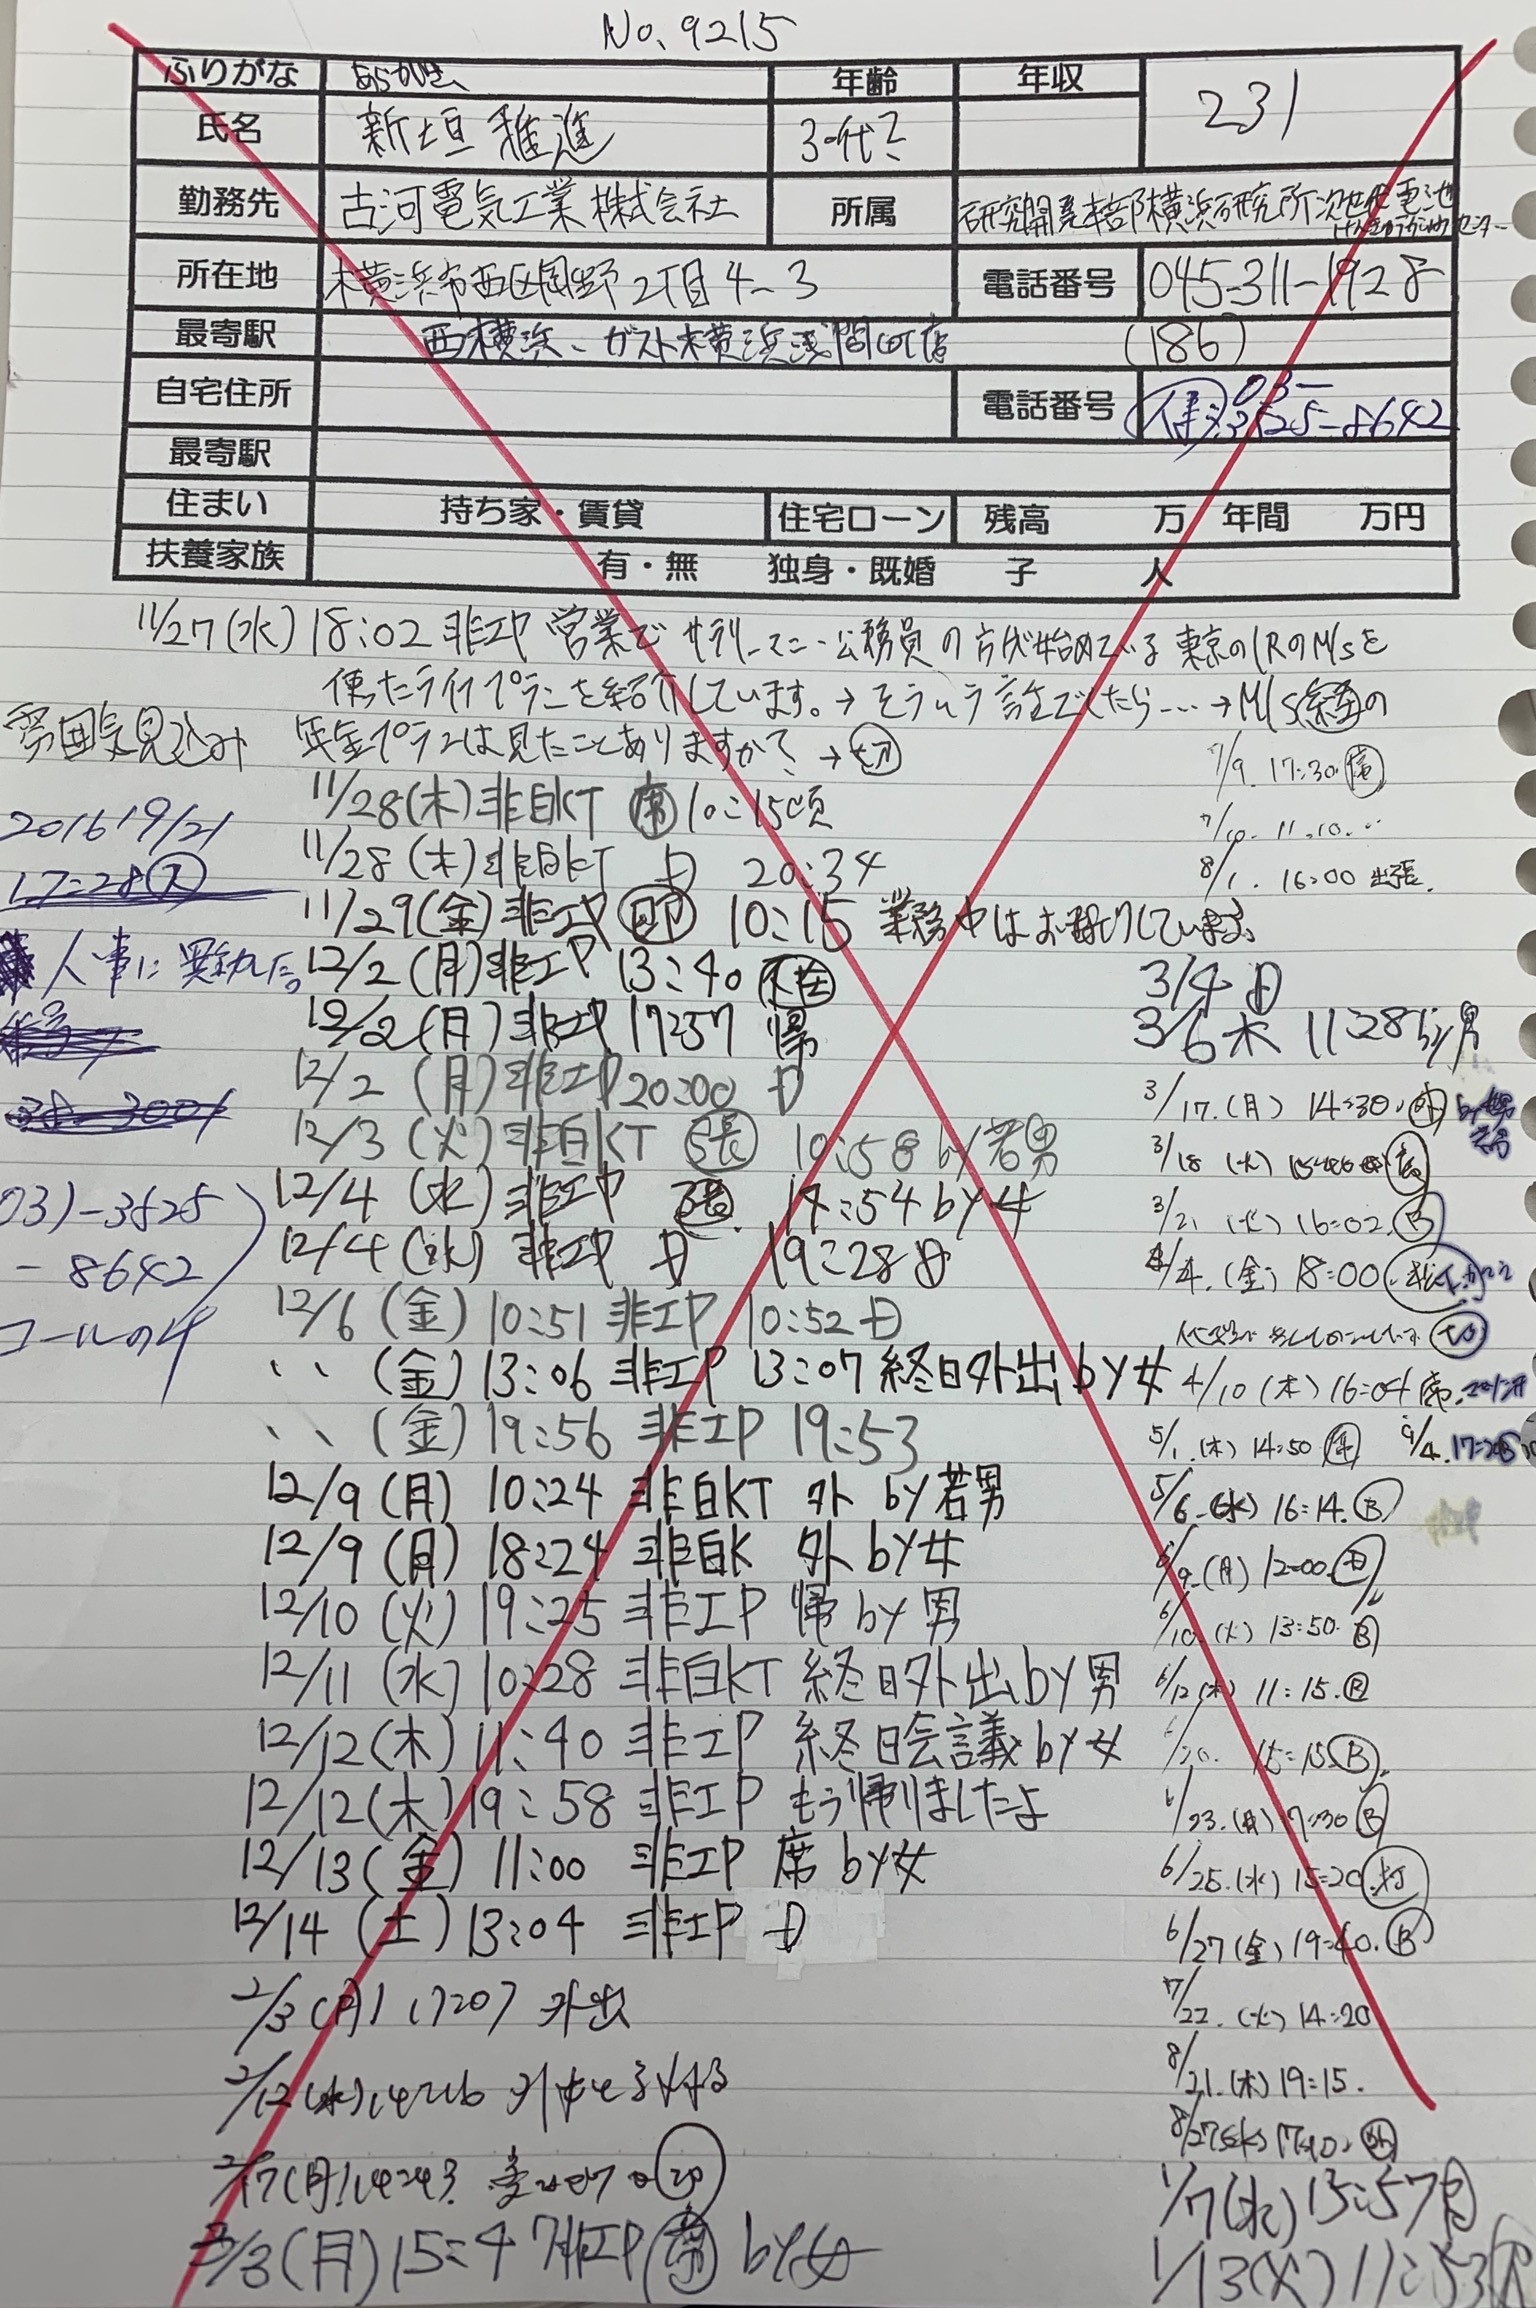 No. 9215
ふりがな あらがき 年齢 年収 231
氏名 新垣 雅進 30代?
勤務先 古河電気工業株式会社 所属 研究開発本部横浜研究所次世代電池
センター
所在地 横浜市西区岡野2丁目4-3 電話番号 045-311-1928
最寄駅 西横浜、ガスト横浜浅間町店 (186)
自宅住所 電話番号 03-
3525-8642
最寄駅
住まい 持ち家・賃貸 住宅ローン 残高 万 年間 万円
扶養家族 有・無 独身・既婚 子 人
11/27(水) 18:02 非エP 営業で サラリーマン・公務員の方が始めている東京の1RのM/Sを
使ったライフプランを紹介しています。→そういう話でしたら…→M/S経の
年金プランは見たことありますか?→切
雰囲気見込み
11/28(木)非白KT 席 10:15頃
11/28(木)非白KT 日 20:34
11/29(金)非エP 即 10:15 業務中はお断りしています。
12/2(月)非エP 13:40 不在
12/2(月)非エP 17:57 帰
12/2(月)非エP 20:00 日
12/3(火)非白KT 張 10:58 by若男
12/4(水)非エP 張 17:54 by女
12/4(水)非エP 日 19:28 日
12/6(金)10:51 非エP 10:52 日
〃(金)13:06 非エP 13:07 終日外出 by女
〃(金)19:56 非エP 19:53
12/9(月)10:24 非白KT 外 by若男
12/9(月)18:24 非白K 外 by女
12/10(火)19:25 非エP 帰 by男
12/11(水)10:28 非白KT 終日外出 by男
12/12(木)11:40 非エP 終日会議 by女
12/12(木)19:58 非エP もう帰りましたよ
12/13(金)11:00 非エP 席 by女
12/14(土)13:04 非エP 日
2/3(月)17207 外出
2/12(水)
2/17(月)14:43
3/3(月)15:47 非エP 席 by女
2016 19/21
17:28
人事に異動した。
03)-3525
-8642
コールのみ
7/9. 17:30. 席
7/10. 11.10.
8/1. 16:00 出張.
3/4 日
3/6 木 11:28 by男
3/17.(月) 14:30. 外 by男
3/18(火) 席
3/21 16:02. B
4/4.(金) 18:00
切
4/10(木) 16:04 席.
5/1.(木) 14:50 9/4. 17:28
5/6.(水) 16:14. B
6/9.(月) 12:00. 日
6/10.(火) 13:50. B
6/12(木) 11:15. B
6/20. 15:15 B
6/23.(月) 17:30 B
6/25.(水) 15:20. 打
6/27(金) 19:40. B
7/22.(火) 14:20
8/21.(木) 19:15.
8/27(水) 17:10. 外
1/7(水) 13:57
1/13(火) 11:53